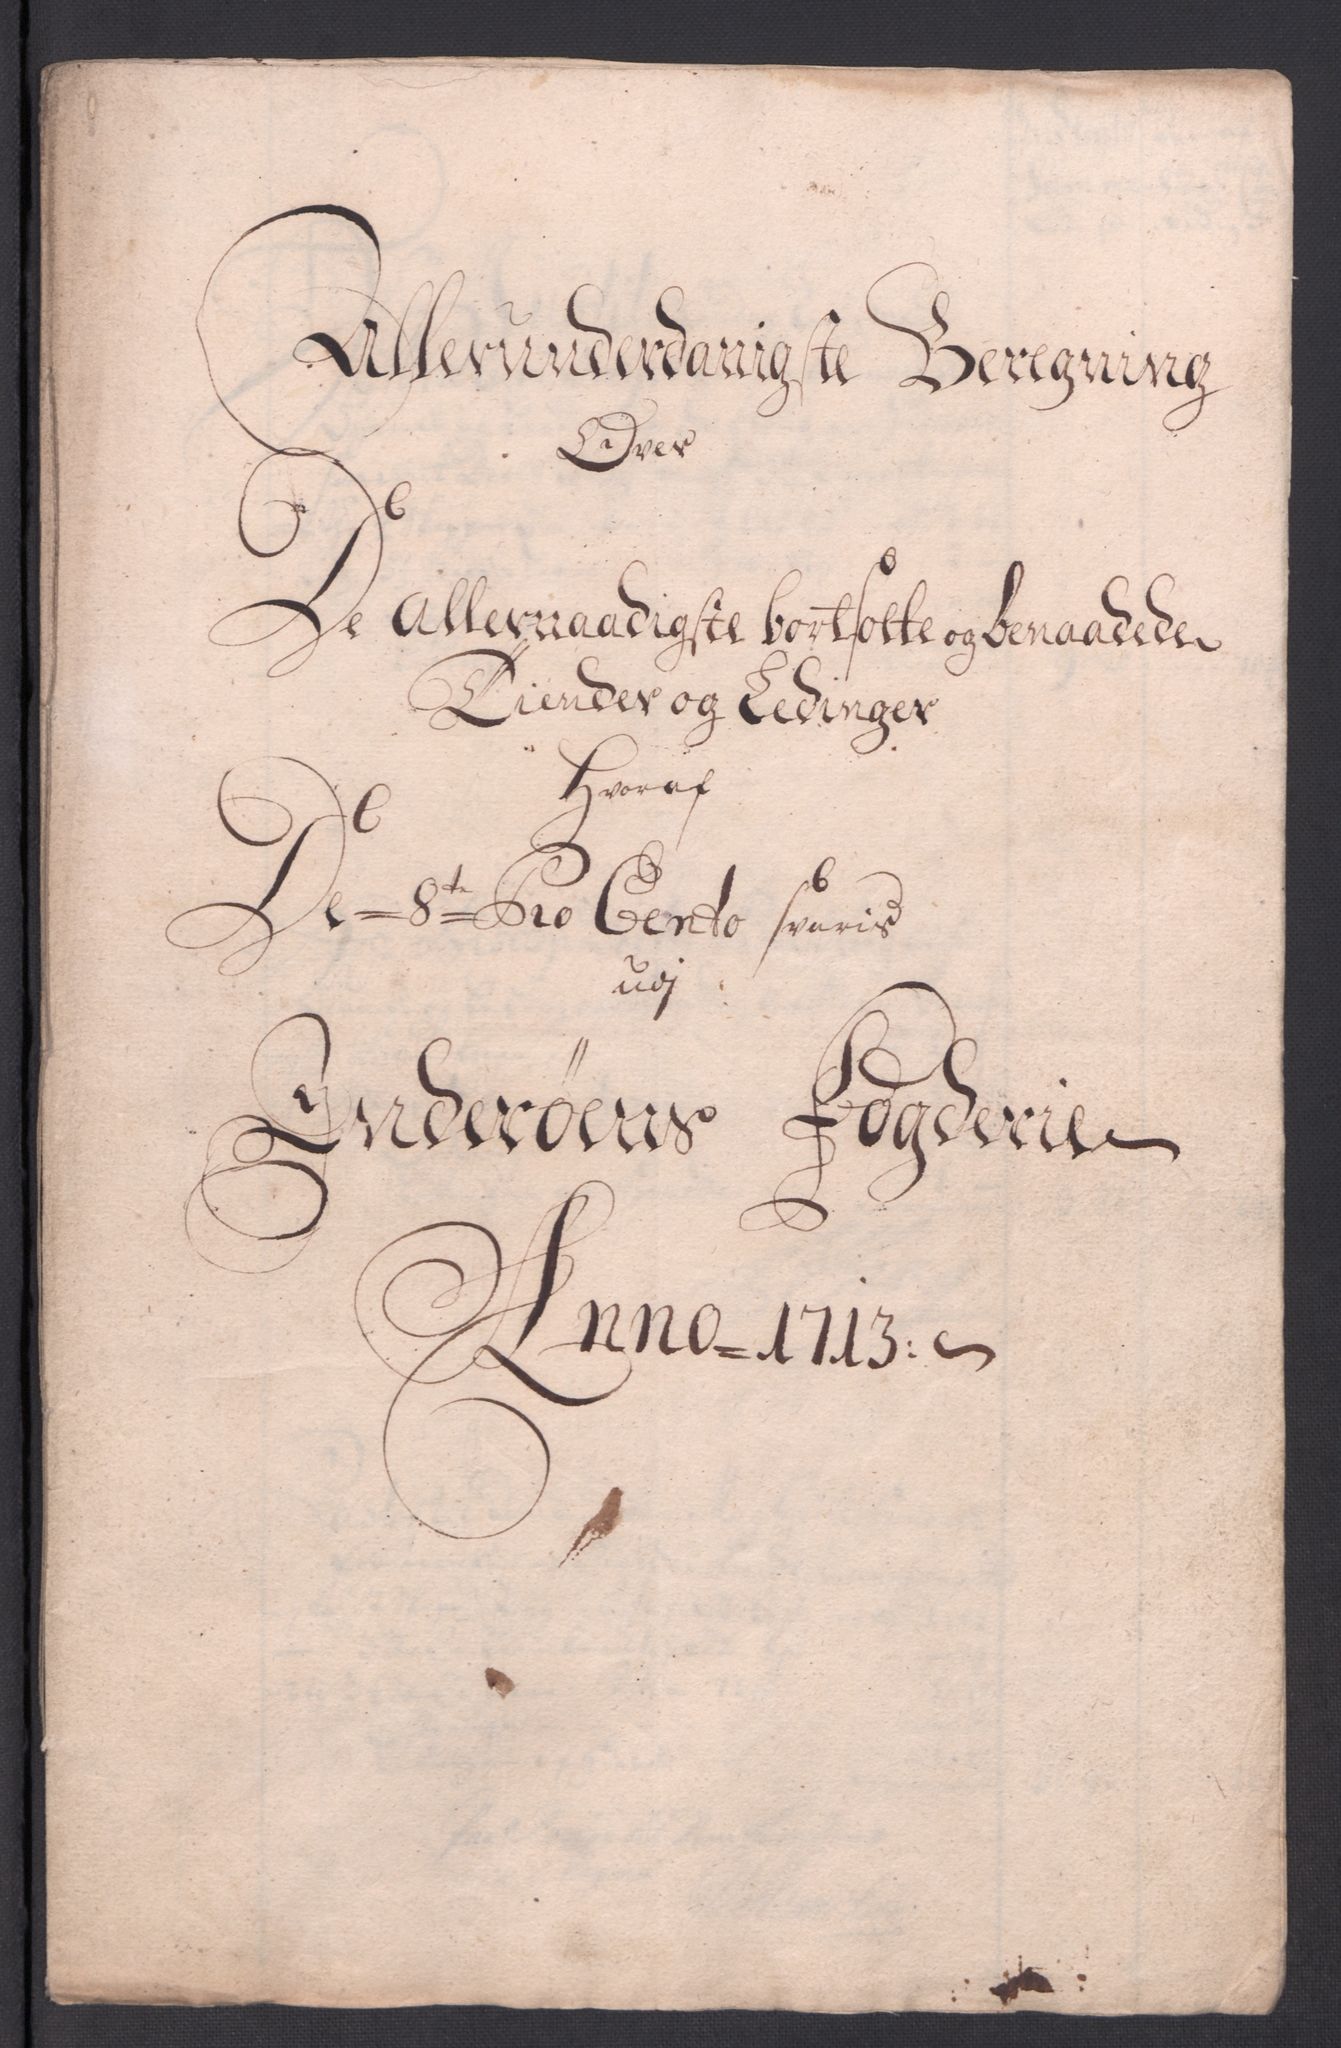 Allerunderdanigste Beregning
Over
De allernaadigste bortsolte og benaadede
Tiender og Ledinger
Hvoraf
De 8te Pro Cento svaris
udj
Inderöens Fogderie
Anno 1713.